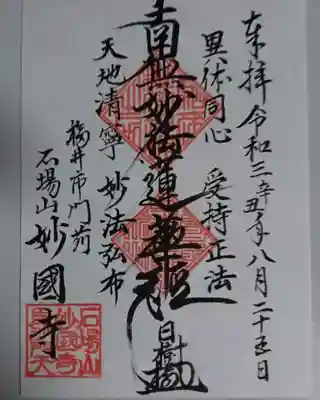 奉拝 令和三辛丑年八月二十五日
異体同心 受持正法
南無妙法蓮華経
日樹
天地清寧 妙法弘布
福井市門前
石場山 妙國寺